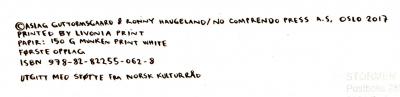 ©ASLAG GUTTORMSGAARD & RONNY HAUGELAND/NO COMPRENDO PRESS A.S, OSLO 2017
PRINTED BY LIVONIA PRINT
PAPIR: 150 G MUNKEN PRINT WHITE
FØRSTE OPPLAG
ISBN 978-82-82255-062-8
UTGITT MED STØTTE FRA NORSK KULTURRÅD